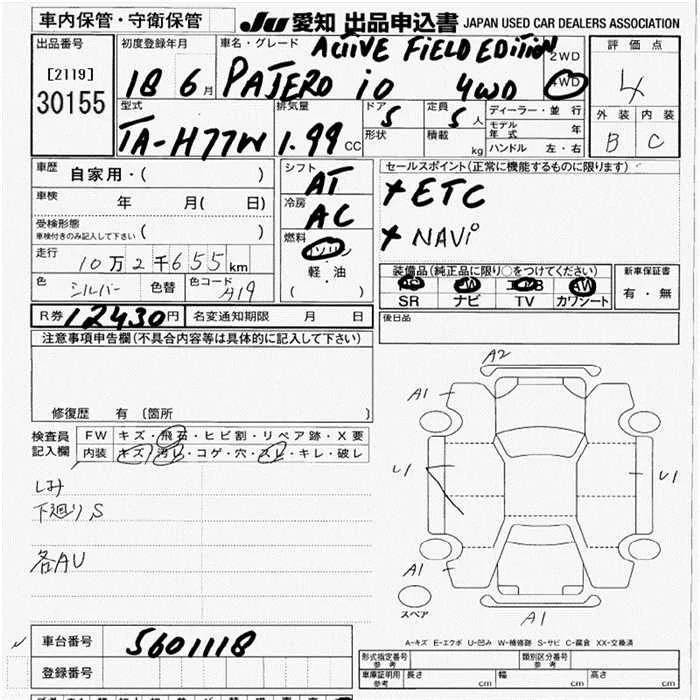 車内保管・守衛保管 JU 愛知 出品申込書 JAPAN USED CAR DEALERS ASSOCIATION
出品番号 初度登録年月 車名・グレード ACTIVE FIELD EDITION 2WD 評価点
[2119] 18 6月 PAJERO iO 4WD 4WD 4
30155 型式 排気量 ドア 定員 ディーラー・並行 外装 内装
TA-H77W 1.99 CC 5 5人 モデル年式 年 B C
形状 積載 kg ハンドル 左・右
車歴 自家用・( ) シフト AT セールスポイント(正常に機能するものに限ります)
車検 年 月( 日) 冷房 AC + ETC
受検形態 ( ) + NAVi
車検付きのみ記入して下さい
走行 10万2千655km 燃料 ガソリン
色 シルバー 色替 色コード A19 軽・油 ( )
装備品(純正品に限り○をつけてください) 新車保証書
PS PW エアB AW 有・無
SR ナビ TV カワシート
R券 12430円 名変通知期限 月 日 後日品
注意事項申告欄(不具合内容等は具体的に記入して下さい)
修復歴 有(箇所 )
検査員記入欄 FW キズ・飛石・ヒビ割・リペア跡・X要
内装 キズ・汚レ・コゲ・穴・スレ・キレ・破レ
しみ
下廻りS
各AU
A2
A1
U1 U1
A1
スペア A1
A-キズ E-エクボ U-凹み W-補修跡 S-サビ C-腐食 XX-交換済
車台番号 5601118
登録番号
形式指定番号 参考 類別区分番号 参考
車庫証明用 参考 長さ cm 幅 cm 高さ cm